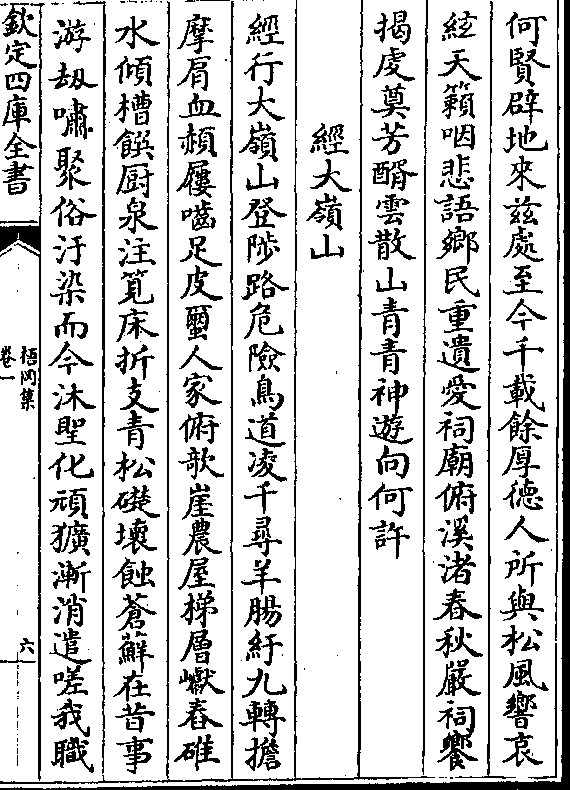 何賢辟地來兹處至今千載餘厚德人所與松風響哀
絃天籟咽悲語鄉民重遺愛祠廟俯溪渚春秋嚴祠饗
揭虔奠芳醑雲散山青青神遊向何許
經大嶺山
經行大嶺山登陟路危險鳥道凌千尋羊腸紆九轉擔
摩肩血赬屨嚙足皮璽人家俯欹崖農屋梯層巘舂碓
水傾槽饌厨泉注筧床折支青松礎壞蝕蒼蘚在昔事
游刼嘯聚俗汙染而今沐聖化頑獷漸消遣嗟我職
欽定四庫全書
梧岡集
卷一
六